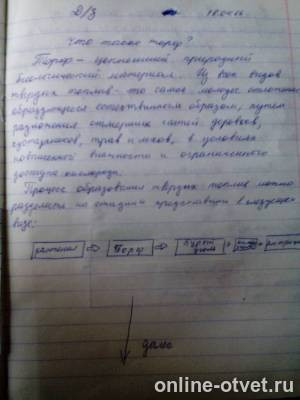 Д/З
Что такое торф?
Торф – ценнейший природный
биологический материал. Из всех видов
твердых топлив - то самое молодое
образующееся естественным образом, путем
разложения отмерших частей деревьев,
кустарников, трав и мхов, в условиях
повышенной влажности и ограниченного
доступа кислорода.
Процесс образования твердых топлив можно
разделить на стадии и представить в следующем
виде:
растения ⇨ Торф ⇨ Бурый
уголь
далее
online-otvet.ru